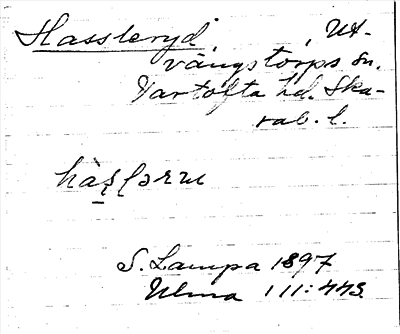 Hassleryd, Ut-
vängstorps sn.
Vartofta hd. Ska-
rab. l.
S. Lampa 1897
Ulma 111:443.